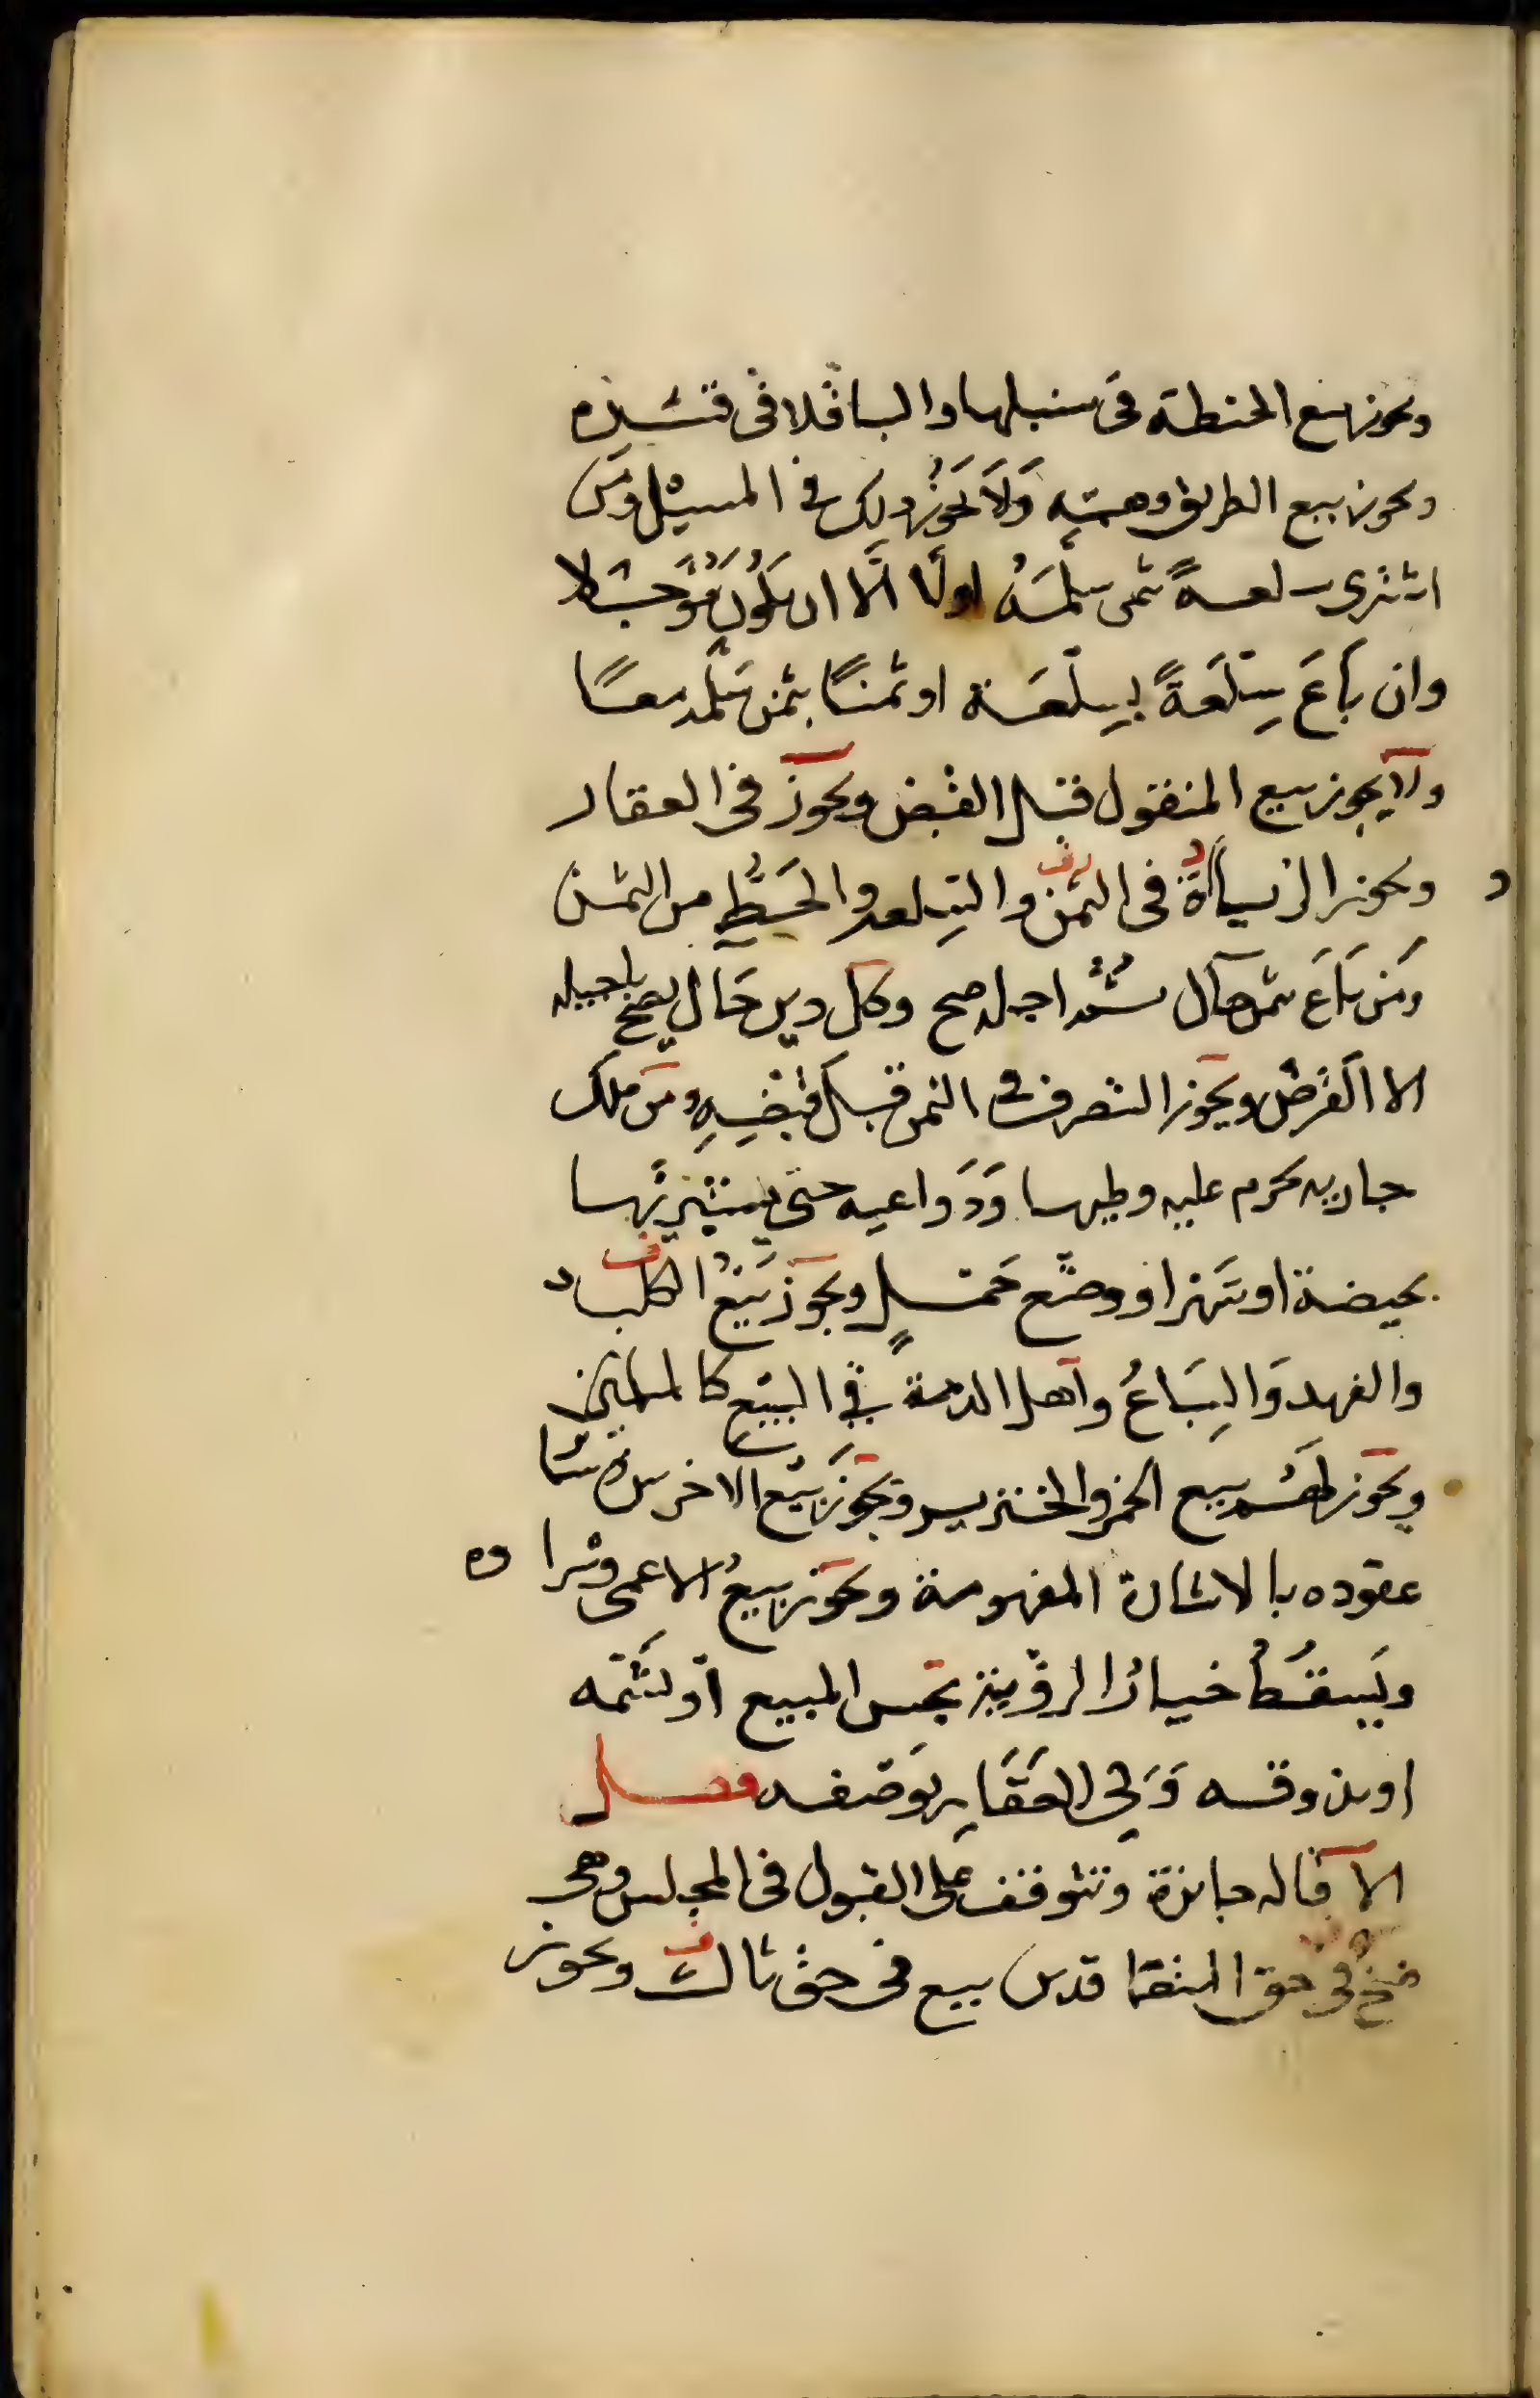 ويجوز بيع الحنطة في سنبلها والباقلا في قشره
ويجوز بيع الطريق وهبته ولا يجوز ذلك في المسيل ومن
اشترى سلعةً بثمن سلمه اولًا الا ان يكون مؤجلا
وان باع سِلعةً بسِلعة او ثمنًا بثمن سلما معًا
ولا يجوز بيع المنقول قبل القبض ويجوز في العقار
ويجوز الزيادة في الثمن والسلعة والحط من الثمن
ومن باع بثمن حال ثم اجله صح وكل دين حال يصح تاجيله
الا القرض ويجوز التصرف في الثمن قبل قبضه ومن ملك
جارية يحرم عليه وطيها ودواعيه حتى يستبرئها
بحيضة او شهر او وضع حمل ويجوز بيع الكلب
والفهد والسباع واهل الذمة في البيع كالمسلمين
ويجوز لهم بيع الخمر والخنزير ويجوز بيع الاخرس وسائر
عقوده بالاشارة المفهومة ويجوز بيع الاعمى وشراوه
ويسقط خيار الرؤية بجس المبيع او بشمه
او بذوقه وفي العقار بوصفه فصل
الاقاله جائزة وتتوقف على القبول في المجلس وهي
فسخ في حق المتعاقدين بيع في حق ثالث ويجوز